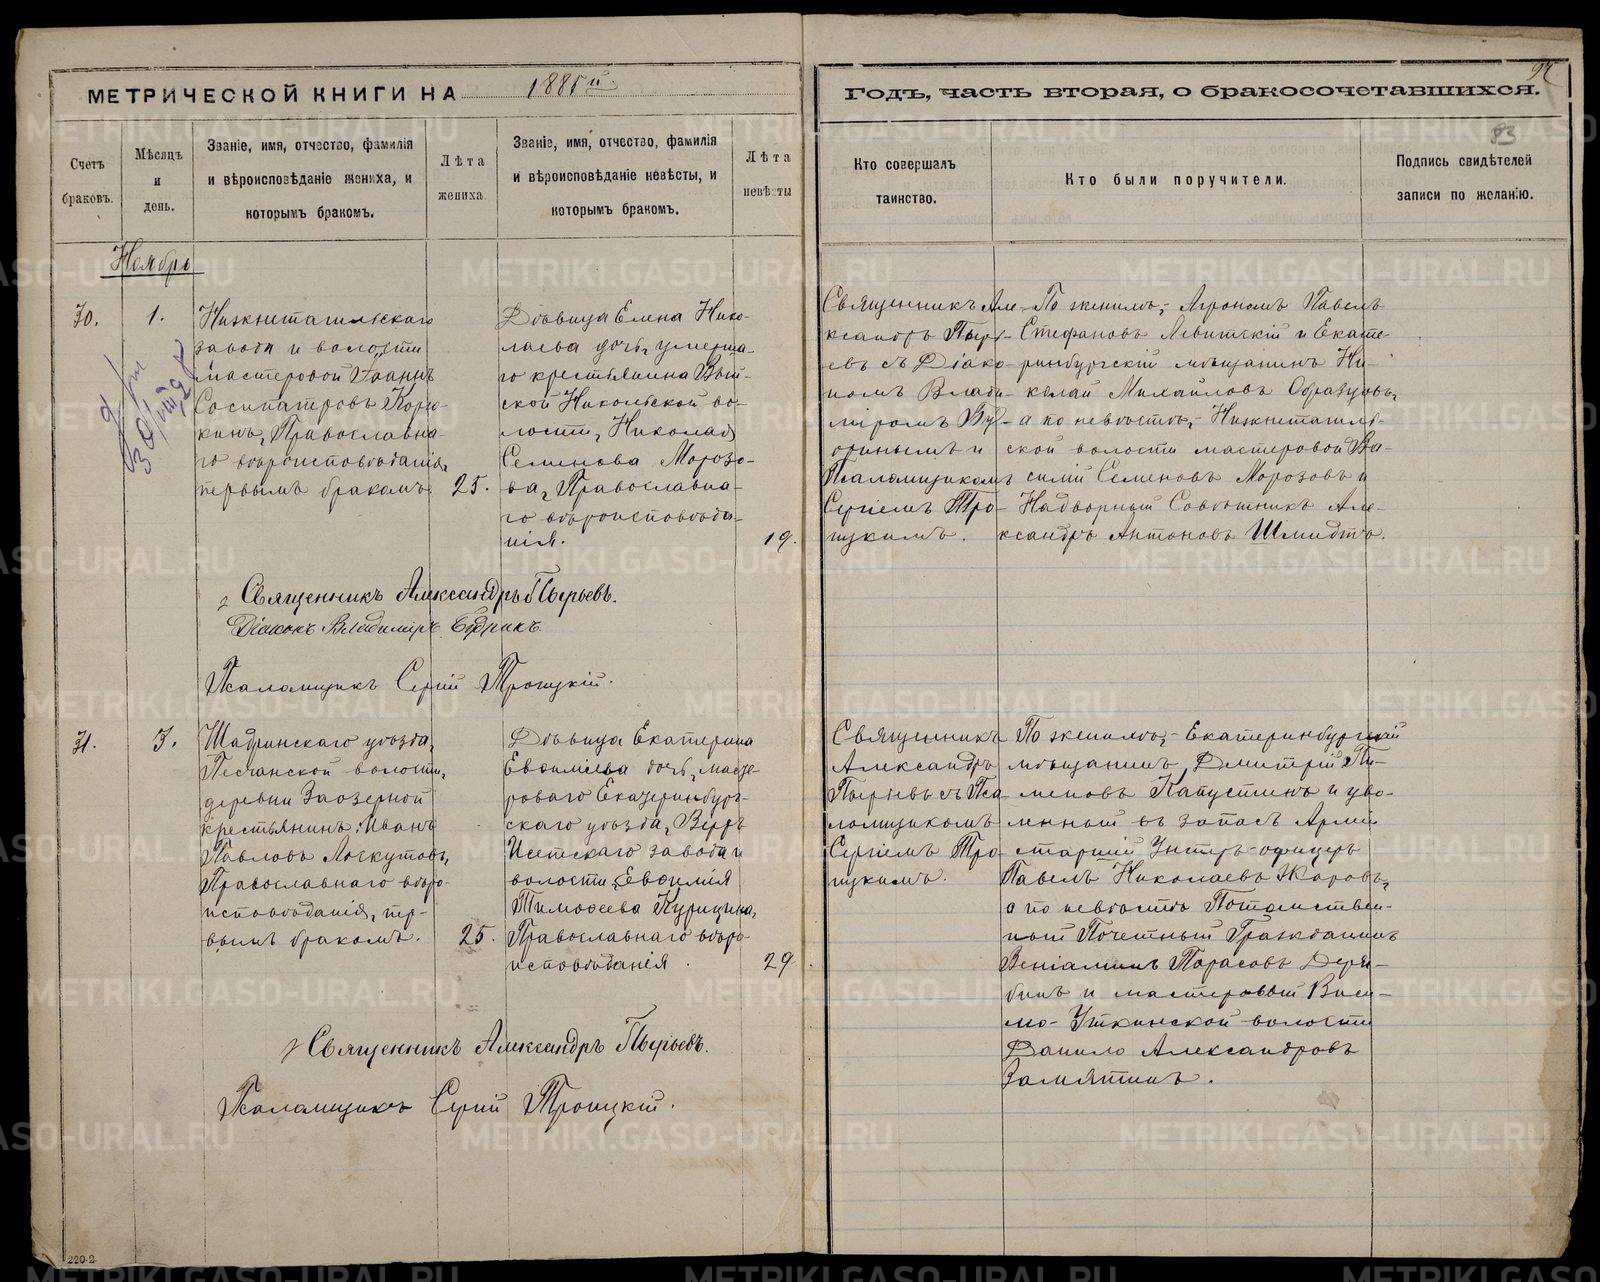 МЕТРИЧЕСКОЙ КНИГИ НА 1885й
годъ, часть вторая, о бракосочетавшихся.
Счетъ браковъ.
Мѣсяцъ и день.
Званіе, имя, отчество, фамилія и вѣроисповѣданіе жениха, и которымъ бракомъ.
Лѣта жениха
Званіе, имя, отчество, фамилія и вѣроисповѣданіе невѣсты, и которымъ бракомъ.
Лѣта невѣсты
Кто совершалъ таинство.
Кто были поручители.
Подпись свидѣтелей записи по желанію.
83
Ноябрь
30.
1.
Нижнетагильскаго
завода и волости
мастеровой Іоаннъ
Сосипатровъ
Православна-
го вѣроисповѣданія,
первымъ бракомъ.
25.
Дѣвица Елена Нико-
лаева дочь, умерша-
го крестьянина Вый-
ской Никольской во-
лости, Николая
Семенова Морозо-
ва, Православна-
го вѣроисповѣда-
нія.
19.
Священникъ Але-
ксандръ Пырь-
евъ съ Діако-
номъ Влади-
міромъ
и
Псаломщикомъ
Сергіемъ Тро-
ицкимъ.
По женихѣ,- Агрономъ Павелъ
Стефановъ Левитскій и Екате-
ринбургскій мѣщанинъ Ни-
колай Михайловъ Образцовъ,
а по невѣстѣ,- Нижнетагиль-
ской волости мастеровой Ва-
силій Семеновъ Морозовъ и
Надворный Совѣтникъ Але-
ксандръ Антоновъ Шмидтъ.
Священникъ Александръ Пырьевъ.
Діаконъ Владимиръ
Псаломщикъ Сергій Троицкій.
31.
3.
Шадринскаго уѣзда,
Песчанской волости,
деревни Заозерной
крестьянинъ Иванъ
Павловъ Лоскутовъ,
Православнаго вѣро-
исповѣданія, пер-
вымъ бракомъ.
25.
Дѣвица Екатерина
Евфиміева дочь, масте-
роваго Екатеринбург-
скаго уѣзда, Верхъ
Исетскаго завода и
волости, Евфимія
Тимофеева Курицына,
Православнаго вѣро-
исповѣданія.
29
Священникъ
Александръ
Пырьевъ съ Пса-
ломщикомъ
Сергіемъ Тро-
ицкимъ.
По женихѣ,- Екатеринбургскій
мѣщанинъ Дмитрій Пи-
меновъ Капустинъ и уво-
ленный въ запасъ Арміи
старшій Унтеръ-офицеръ
Павелъ Николаевъ Жаровъ,
а по невѣстѣ Потомствен-
ный Почетный Гражданинъ
Веніаминъ Тарасовъ Деря-
бинъ и мастеровый Виси-
мо-Уткинской волости
Данило Александровъ
Замятинъ.
Священникъ Александръ Пырьевъ.
Псаломщикъ Сергій Троицкій.
220-2
METRIKI.GASO-URAL.RU